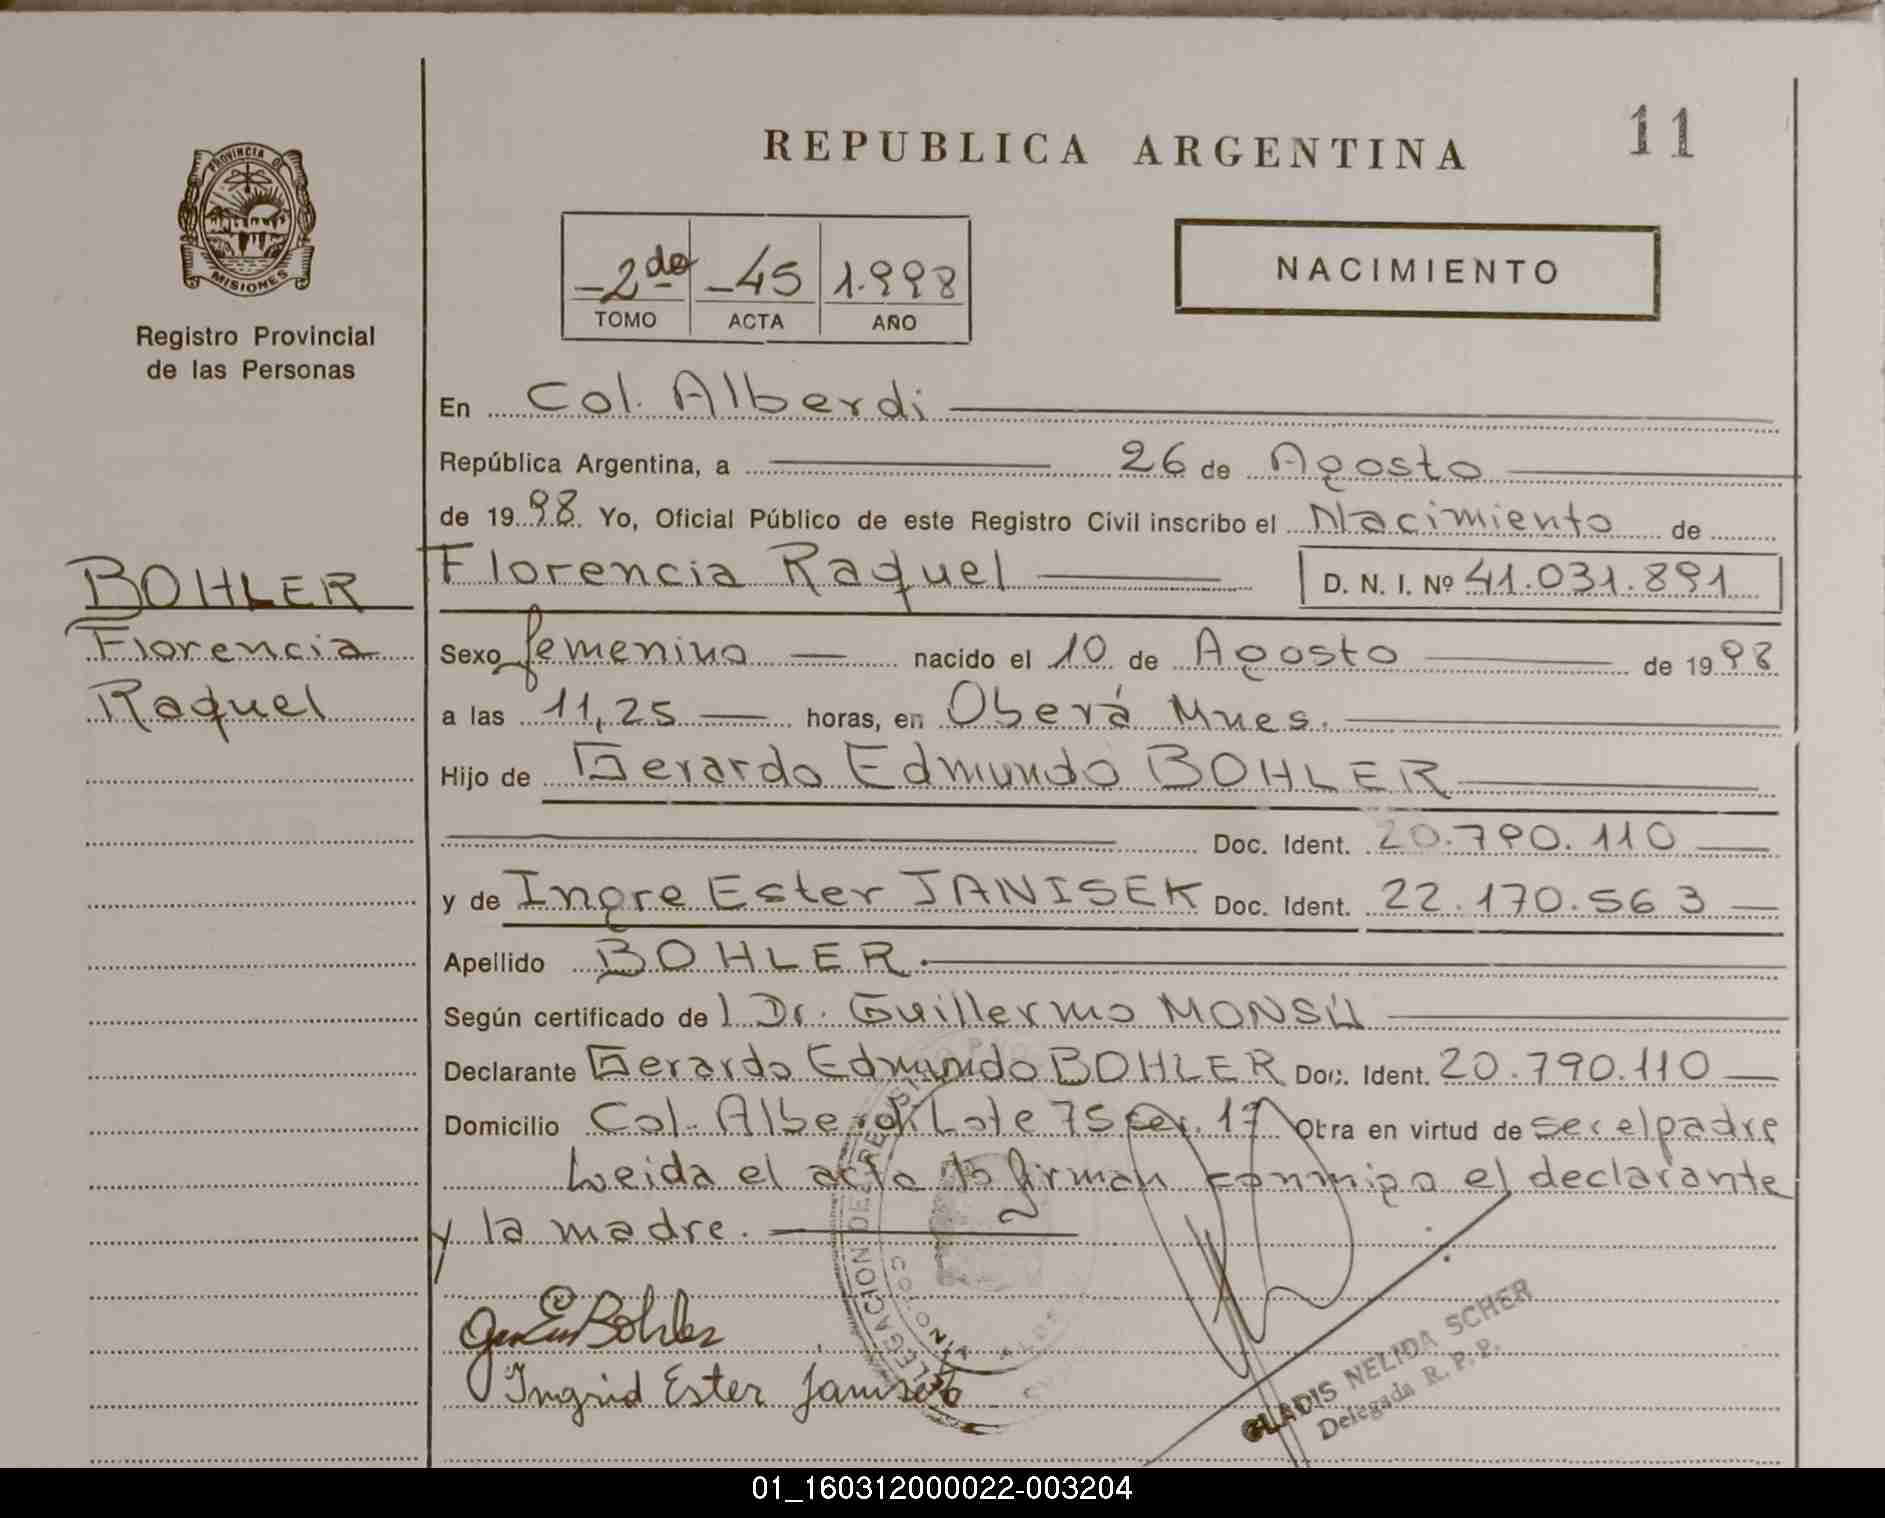 11
REPUBLICA ARGENTINA
PROVINCIA DE
MISIONES
Registro Provincial
de las Personas
-2do -45 1.998
TOMO ACTA AÑO
NACIMIENTO
En Col. Alberdi
República Argentina, a 26 de Agosto
de 19 98. Yo, Oficial Público de este Registro Civil inscribo el Nacimiento de
BOHLER
Florencia
Raquel
Florencia Raquel D. N. I. Nº 41.031.891
Sexo femenino nacido el 10 de Agosto de 19 98
a las 11,25 horas, en Oberá Mnes.
Hijo de Gerardo Edmundo BOHLER
Doc. Ident. 20.790.110
y de Ingre Ester JANISEK Doc. Ident. 22.170.563
Apellido BOHLER.
Según certificado de l Dr. Guillermo MONSÚ
Declarante Gerardo Edmundo BOHLER Doc. Ident. 20.790.110
Domicilio Col. Alberdi Lote 75 Sec. 17 Obra en virtud de ser el padre
Leida el acta la firman conmigo el declarante
y la madre.
Bohler
Ingrid Ester Janisek
DELEGACION DEL RE
GLADIS NELIDA SCHER
Delegada R. P. P.
01_160312000022-003204